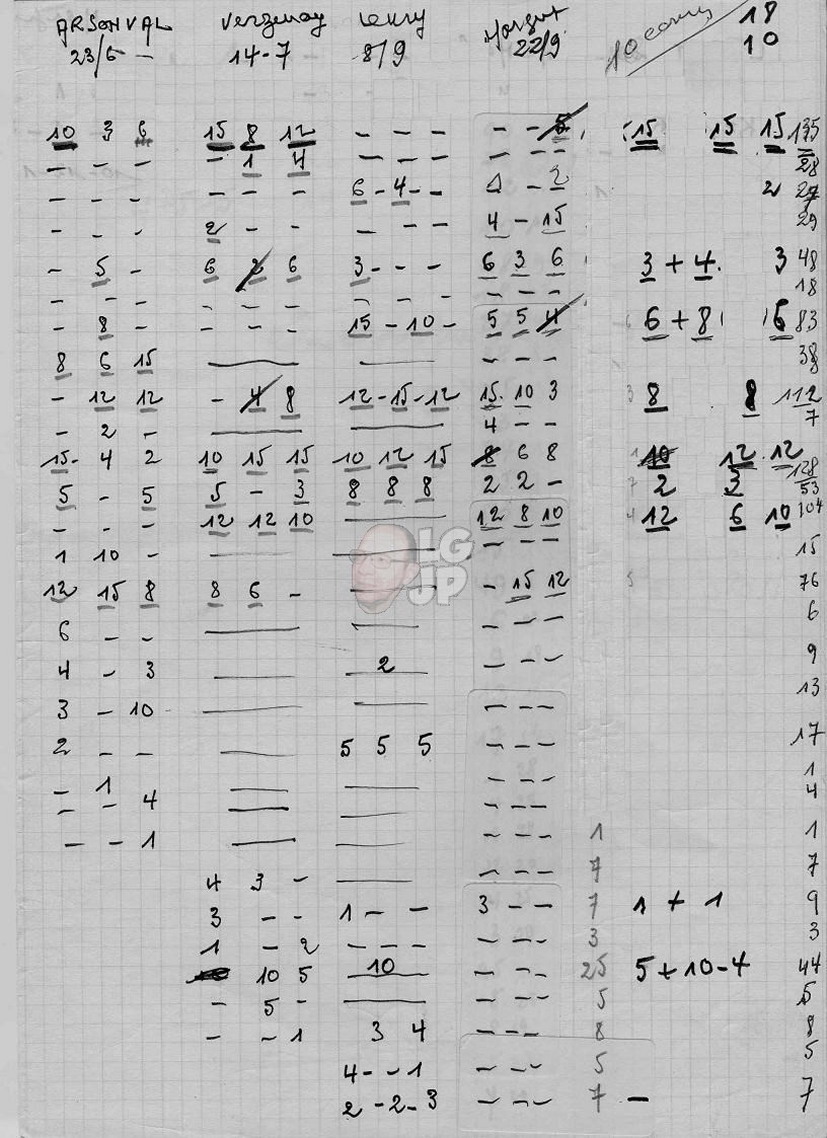 ARSONVAL Verzenay Leury Margut 10 comm 18
23/5 - 14-7 8/9 22/9 10
10 3 6 15 8 12 - - - - - 5 15 15 15 135
- - - - 1 4 - - - - - - 28
- - - - - - 6 - 4 - - 1 - 2 2 27
- - - 2 - - - - - 4 - 15 29
- 5 - 6 2 6 3 - - - 6 3 6 3 + 4 3 48
- - - - - - - - - - - - 18
- 8 - - - - 15 - 10 - 5 5 4 6 + 8 6 83
8 6 15 - - - 38
- 12 12 - 4 8 12 - 15 - 12 15 10 3 8 8 112
- 2 - 4 - - 7
15 - 4 2 10 15 15 10 12 15 8 6 8 10 12 12 128
5 - 5 5 - 3 8 8 8 2 2 - 2 3 53
- - - 12 12 10 12 8 10 12 6 10 104
1 10 - - - - 15
LG
JP
12 15 8 8 6 - - 15 12 76
6 - - - - - 6
4 - 3 2 - - - 9
3 - 10 - - - 13
2 - - 5 5 5 - - - 17
- 1 - - - - 1
- - 4 - - - 4
- - 1 - - - 1 1
4 3 - - - - 7 7
3 - - 1 - - 3 - - 7 1 + 1 9
1 - 2 - - - - - - 3 3
10 5 10 - - - 25 5 + 10 - 4 44
- 5 - - - - 5 5
- - 1 3 4 - - - 8 8
4 - - 1 - - - 5 5
2 - 2 - 3 - - - 7 - 7